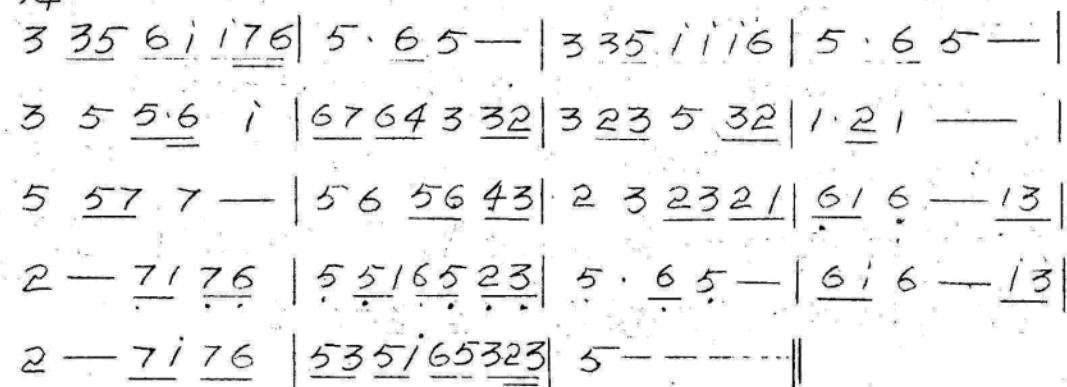 3 35 6i i76 | 5 · 6 5 — | 3 35 i i i6 | 5 · 6 5 — |
3 5 5·6 i | 67 64 3 32 | 3 23 5 32 | 1·2 1 — |
5 57 7 — | 5 6 56 43 | 2 3 23 21 | 61 6 — 13 |
2 — 71 76 | 5 51 65 23 | 5 · 6 5 — | 6i 6 — i3 |
2 — 7i 76 | 53 5i 65 323 | 5 - - - ||